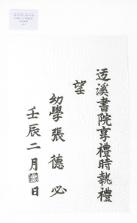 迃溪書院享禮時執禮
望
幼學張德必
壬辰二月 日